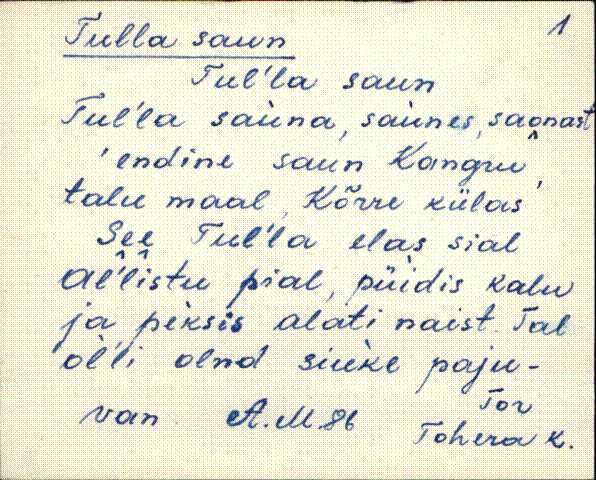 1
Tulla saun
Tul'la saun
Tul'la saùna, saùnes, saonast
'endine saun Kangru
talu maal, Kõrre külas
See Tul'la elas sial
al'listu pial, püìdis kalu
ja pèksis alati naist. Tal
òl'li olnd siuke paju-
van A.M. 86
Tor
Tohera k.